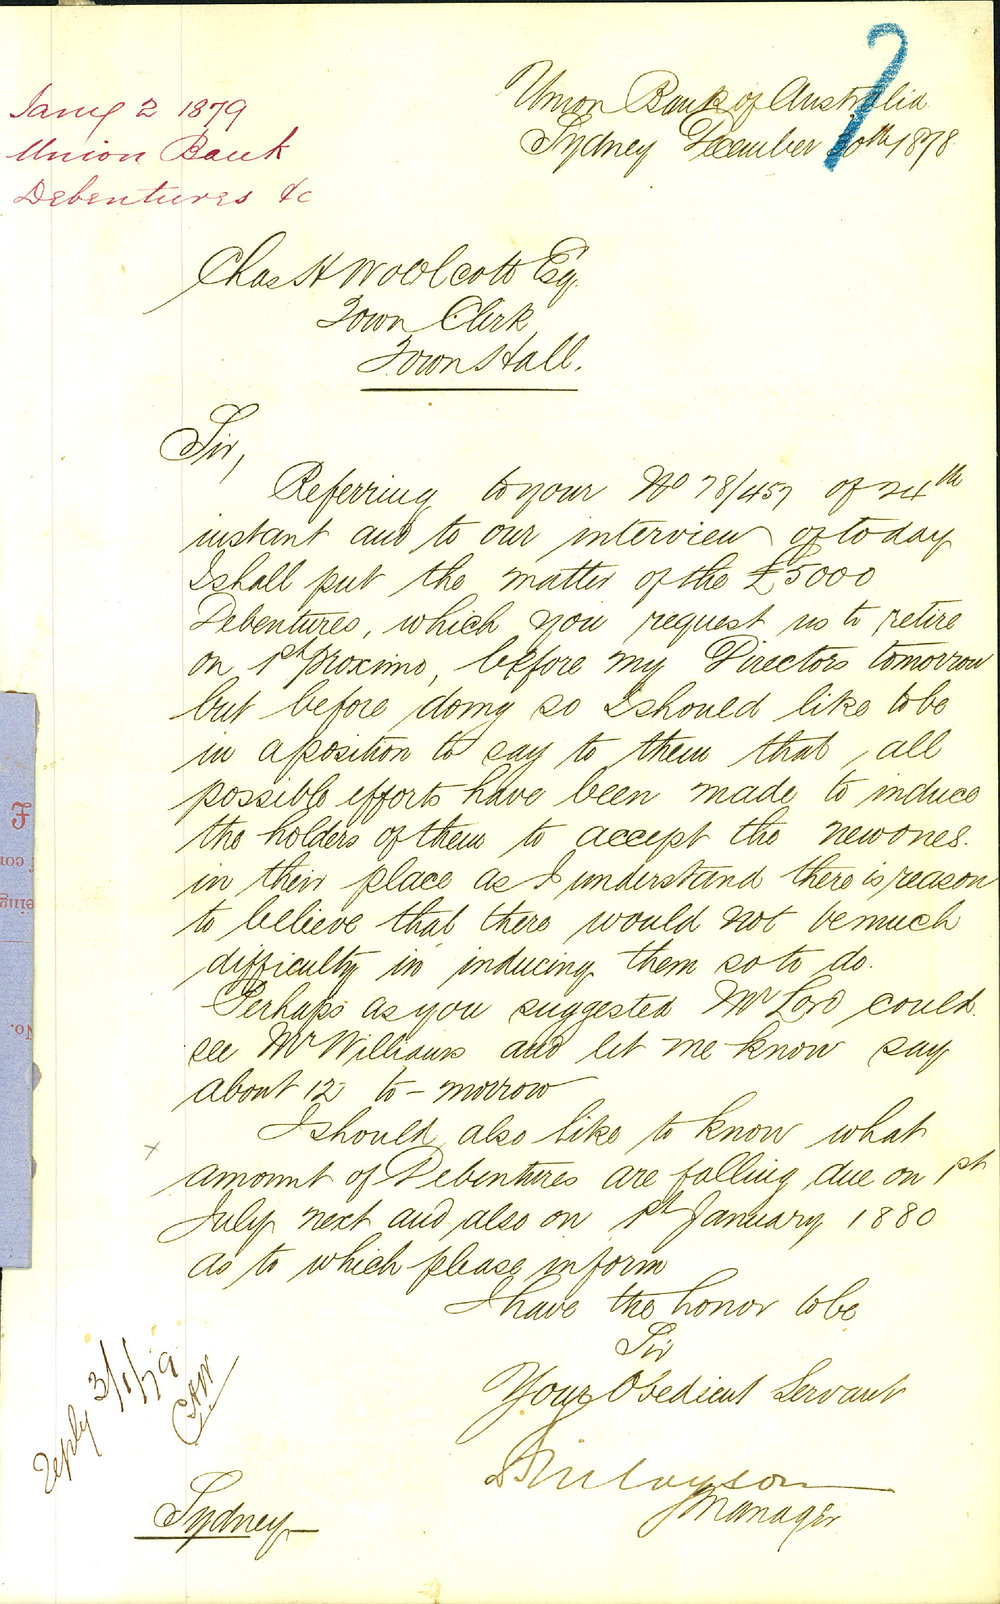 Jany 2 1879
Union Bank
Debentures &c
Union Bank of Australia
Sydney December 30th 1878
Chas H Woolcott Esq.
Town Clerk
Town Hall.
Sir,
Referring to your No 78/457 of 24th
instant and to our interview of today
I shall put the matter of the £5000
Debentures, which you request us to retire
on 1st proximo, before my Directors tomorrow
but before doing so I should like to be
in a position to say to them that all
possible efforts have been made to induce
the holders of them to accept the new ones.
in their place as I understand there is reason
to believe that there would not be much
difficulty in inducing them so to do.
Perhaps as you suggested Mr Lord could
see Mr Williams and let me know say
about 12 to-morrow
I should also like to know what
amount of Debentures are falling due on 1st
July next and also on 1st January 1880
as to which please inform
I have the honor to be
Sir
Your Obedient Servant
Finlayson
Manager
Reply 3/1/79
CHW
Sydney
F
No.